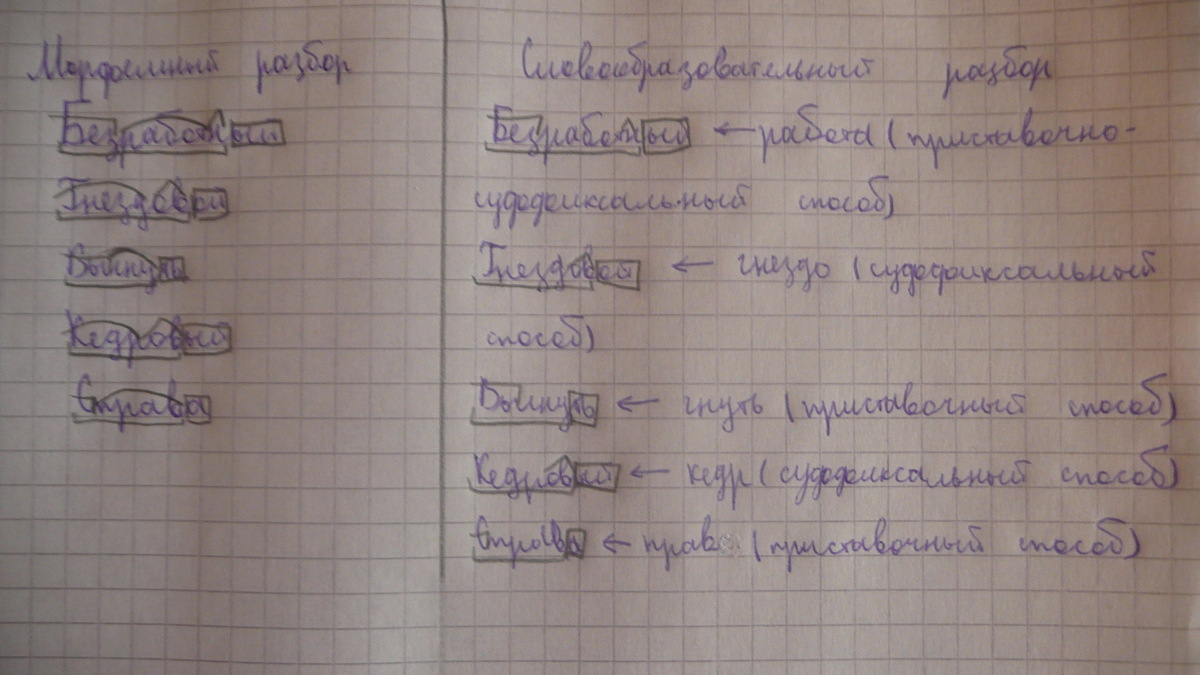 Морфемный разбор
Безработный
Гнездовой
Выгнуть
Кедровый
Справа
Словообразовательный разбор
Безработный ← работа (приставочно-
суффиксальный способ)
Гнездовой ← гнездо (суффиксальный
способ)
Выгнуть ← гнуть (приставочный способ)
Кедровый ← кедр (суффиксальный способ)
Справа ← прав (приставочный способ)